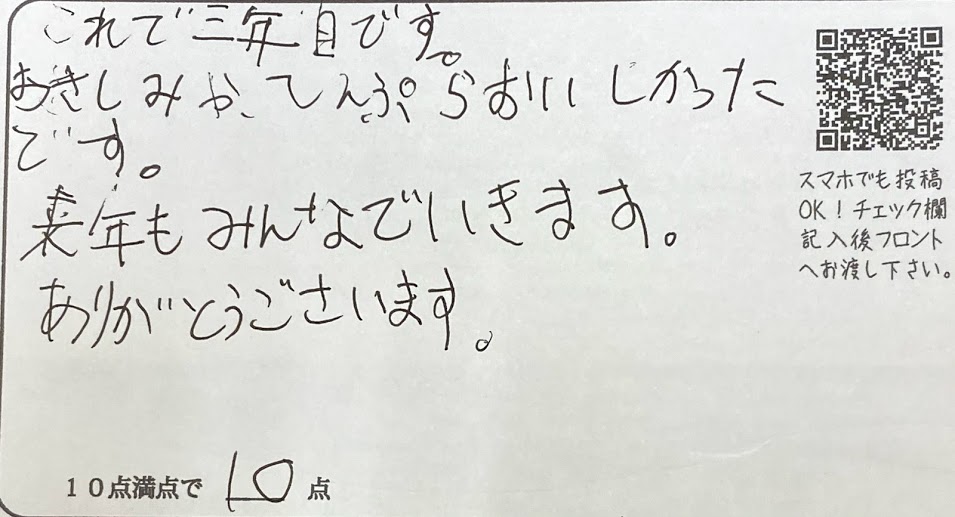 これで三年目です。
おさしみや、てんぷらおいしかった
です。
来年もみんなでいきます。
ありがとうございます。
10点満点で 10 点
スマホでも投稿
OK！チェック欄
記入後フロント
へお渡し下さい。